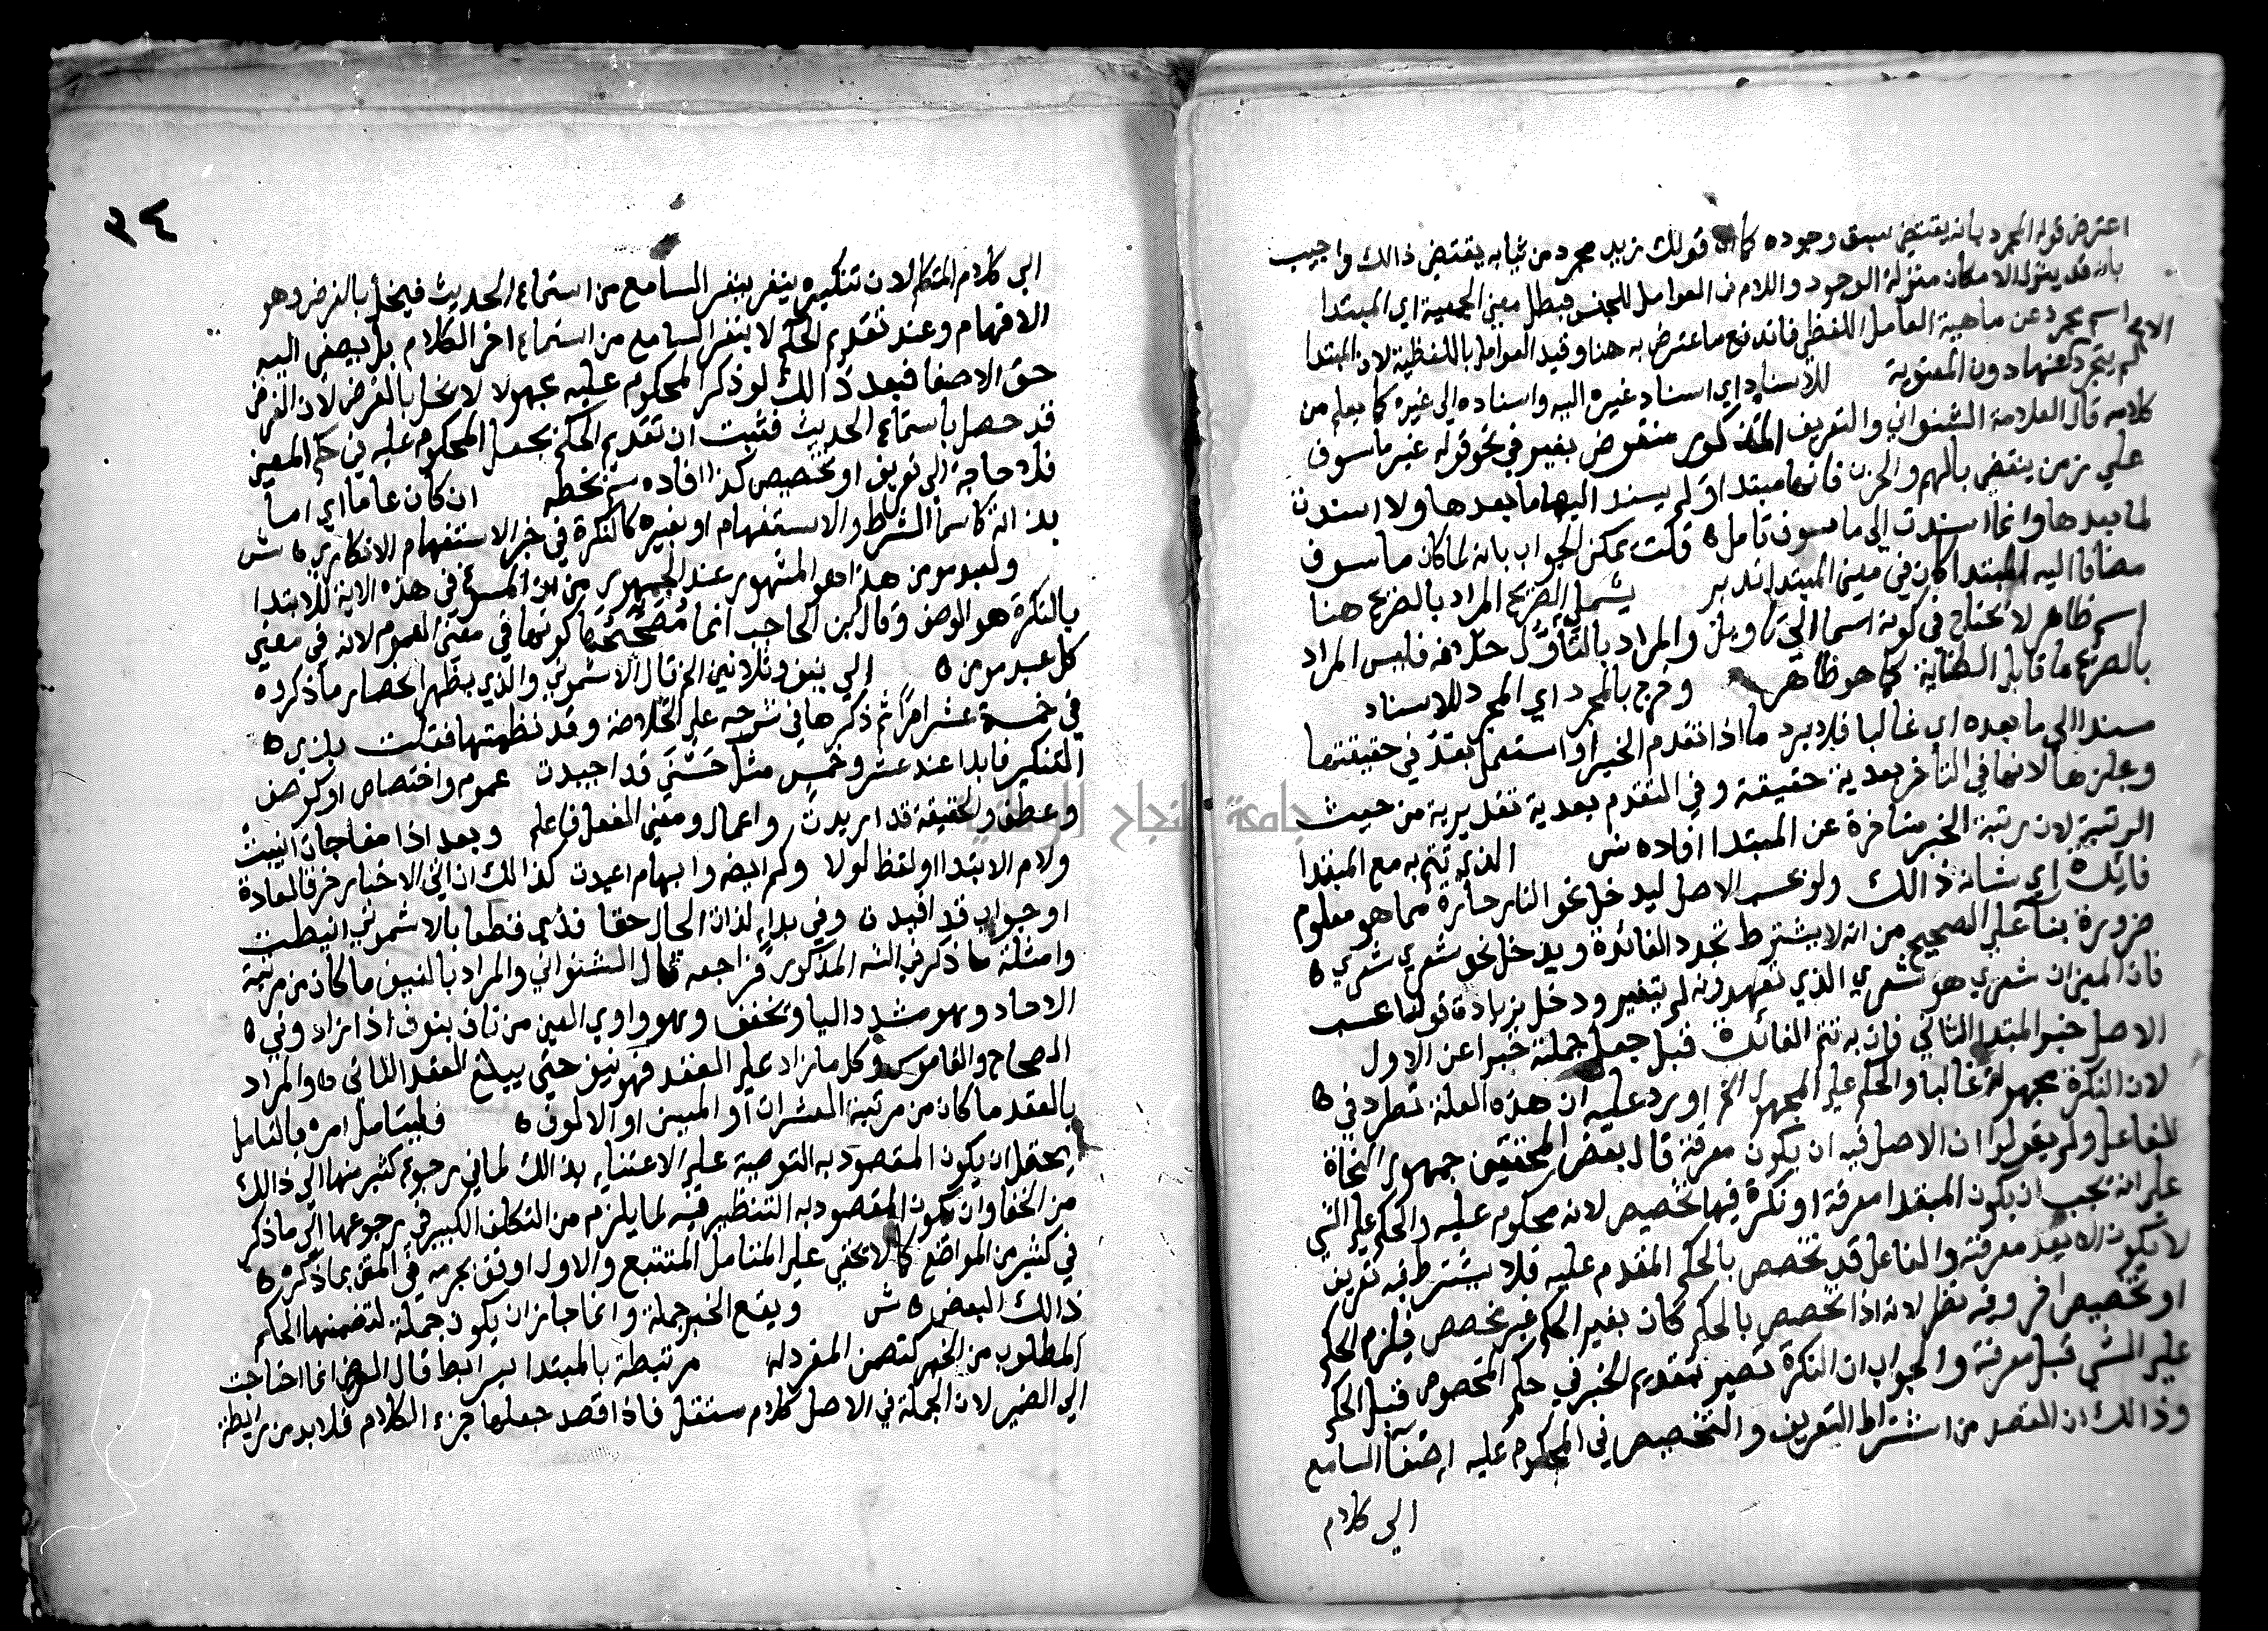 اعترض قوله المجرد بانه يقتضي سبق وجوده كما ان قولك زيد مجرد من ثيابه يقتضي ذالك واجيب
بانه قد ينزل الامكان منزلة الوجود واللام في العوامل للجنس فبطل معني الجمعية اي المبتدا
الاسم مجرد عن ماهية العامل اللفظي فاندفع ما عترض به هنا وقيد العوامل باللفظية لان المبتدا
لم يتجرد عنها دون المعنوية للاسناد اي اسناد غيره اليه واسناده الي غيره كما يعلم من
كلامه قال العلامة الشنواني والتعريف المذكور منقوض بغير في نحو قوله غير ماسوف
علي زمن ينقضي بالهم والحزن فانها مبتدا ولم يسند اليها ما بعدها ولا اسندت
لما بعدها وانما اسندت الي ماسوف تامل ه قلت يمكن الجواب بانه لما كان ماسوف
مضافا اليه المبتدا كان في معني المبتدا تدبر يشمل الصريح المراد بالصريح هنا
اسم ظاهر لا يحتاج في كونه اسما الي تاويل والمراد بالتأوُّل خلافه فليس المراد
بالصريح ما قابل الكناية كما هو ظاهر وخرج بالمجرد اي المجرد للاسناد
سندا الي ما بعده اي غالبا فلا يرد ما اذا تقدم الخبر او استعمل بعد في حقيقتها
ومجازها لانها في التأخر بعدية حقيقة وفي التقدم بعدية تقديرية من حيث
الرتبة لان رتبة الخبر متاخرة عن المبتدا افاده ش الذي تتم به مع المبتدا
فائدة اي شانه ذالك ولو عسب الاصل ليدخل نحو النار حارة مما هو معلوم
ضرورة بنآ علي الصحيح من انه لا يشترط تجدد الفائدة ويدخل نحو شعري شعري ه
فان المعني ان شعري هو شعري الذي تعهدونه لم يتغير ودخل بزيادة قولنا عسب
الاصل خبر المبتدا الثاني فان به تتم الفائدة قبل جعل جملة خبرا عن الاول
لان النكرة مجهولة غالبا والحكم علي المجهول الخ اورد عليه ان هذه العلة تطرد في ه
الفاعل ولم يقولوا ان الاصل فيه ان يكون معرفة قال بعض المحققين جمهور النحاة
علي انه يجب ان يكون المبتدا معرفة او نكرة فيها تخصيص لانه محكوم عليه والحكم علي الشي
لا يكون الا بعد معرفته والفاعل قد تخصص بالحكم المقدم عليه فلا يشترط فيه تعريف
او تخصيص اخر وفيه نظر لانه اذا تخصص بالحكم كان بغير الحكم غير تخصص فيلزم الحكم
علي الشي قبل معرفته والجواب ان النكرة تصير بتقديم الخبر في حكم المخصوص قبل الحكم
وذالك ان القصد من اشتراط التعريف والتخصيص في المحكوم عليه اصغآ السامع
الي كلام
٣٤
الي كلام المتكلم لان تنكيره ينفر بنفر السامع من استماع الحديث فيخل بالغرض وهو
الافهام وعند تقديم الحكم لا ينفر السامع من استماع اخر الكلام بل يصغي اليه
حق الاصغا فبعد ذالك لو ذكر المحكوم عليه مجهولا لا يخل بالغرض لان الغرض
قد حصل باستماع الحديث فثبت ان تقديم الحكم بجعل المحكوم عليه في حكم المعين
فلا حاجة الي تعريف او تخصيص كذا افاده ش بخطه ان كان عاما اي اما
بذاته كاسما الشرط والاستفهام او بغيره كالنكرة في خبر الاستفهام الانكاري ه ش
ولعبد مومن هذا هو المشهور عند الجمهور من ان المسوغ في هذه الاية للابتدا
بالنكرة هو الوصف وقال ابن الحاجب انما مصححتها كونها في معني العموم لانه في معني
كل عبد مومن ه الي نيف وثلاثين الخ قال الاشموني والذي يظهر انحصار ما ذكروه
في خمسة عشر امرا ثم ذكرها في شرحه علي الخلاصة وقد نظمتها فقلت بلزي ه
التنكير فابدا عند عشر وخمس مثل حسني قد اجيدت عموم واختصاص او كوصف
وعطف والحقيقة قد اريدت واعمال ومعني الفعل فاعلم وبعد اذا مفاجات انيبت
ولام الابتدا او لفظ لولا وكم ايضه وابهام اعيدت كذالك ان اتي الاخبار خرق العادة
او جواب قد افيدت وفي بدإ لذات الحال حقا فذي قطعا بالاشموني انيطت
وامثلة ما ذكر في الشه المذكور فراجعه قال الشنواني والمراد بالنيف ما كان من مرتبة
الاحاد وهو مشدد اليا وتخفف وهو واوي العين من ناف ينوف اذا زاد وفي ه
الصحاح والقاموس وكل ما زاد علي العقد فهو نيف حتي يبلغ العقد الثاني ه والمراد
بالعقد ما كان من مرتبة العشرات او الميين او الالوف ه فليتامل امره بالتامل
يحتمل ان يكون المقصود به التوصية علي الاعتناء بذالك لما في رجوع كثير منها الي ذالك
من الخفا وان يكون المقصود به التنظير فيه لما يلزم من التكلف الكبير في رجوعها الي ما ذكر
في كثير من المواضع كما لا يخفي علي المتامل المتتبع والاول اوفق بجرمه في المتن بما ذكره ه
ذالك البعض ه ش ويقع الخبر جملة وانما جاز ان يكون جملة لتضمنها الحكم
المطلوب من الخبر كتضمن المفرد له مرتبطة بالمبتدا برابط قال الرضي انما احتاجت
الي الضمير لان الجملة في الاصل كلام مستقل فاذا قصد جعلها جزء الكلام فلا بد من رابطة
جامعة النجاح الوطنية